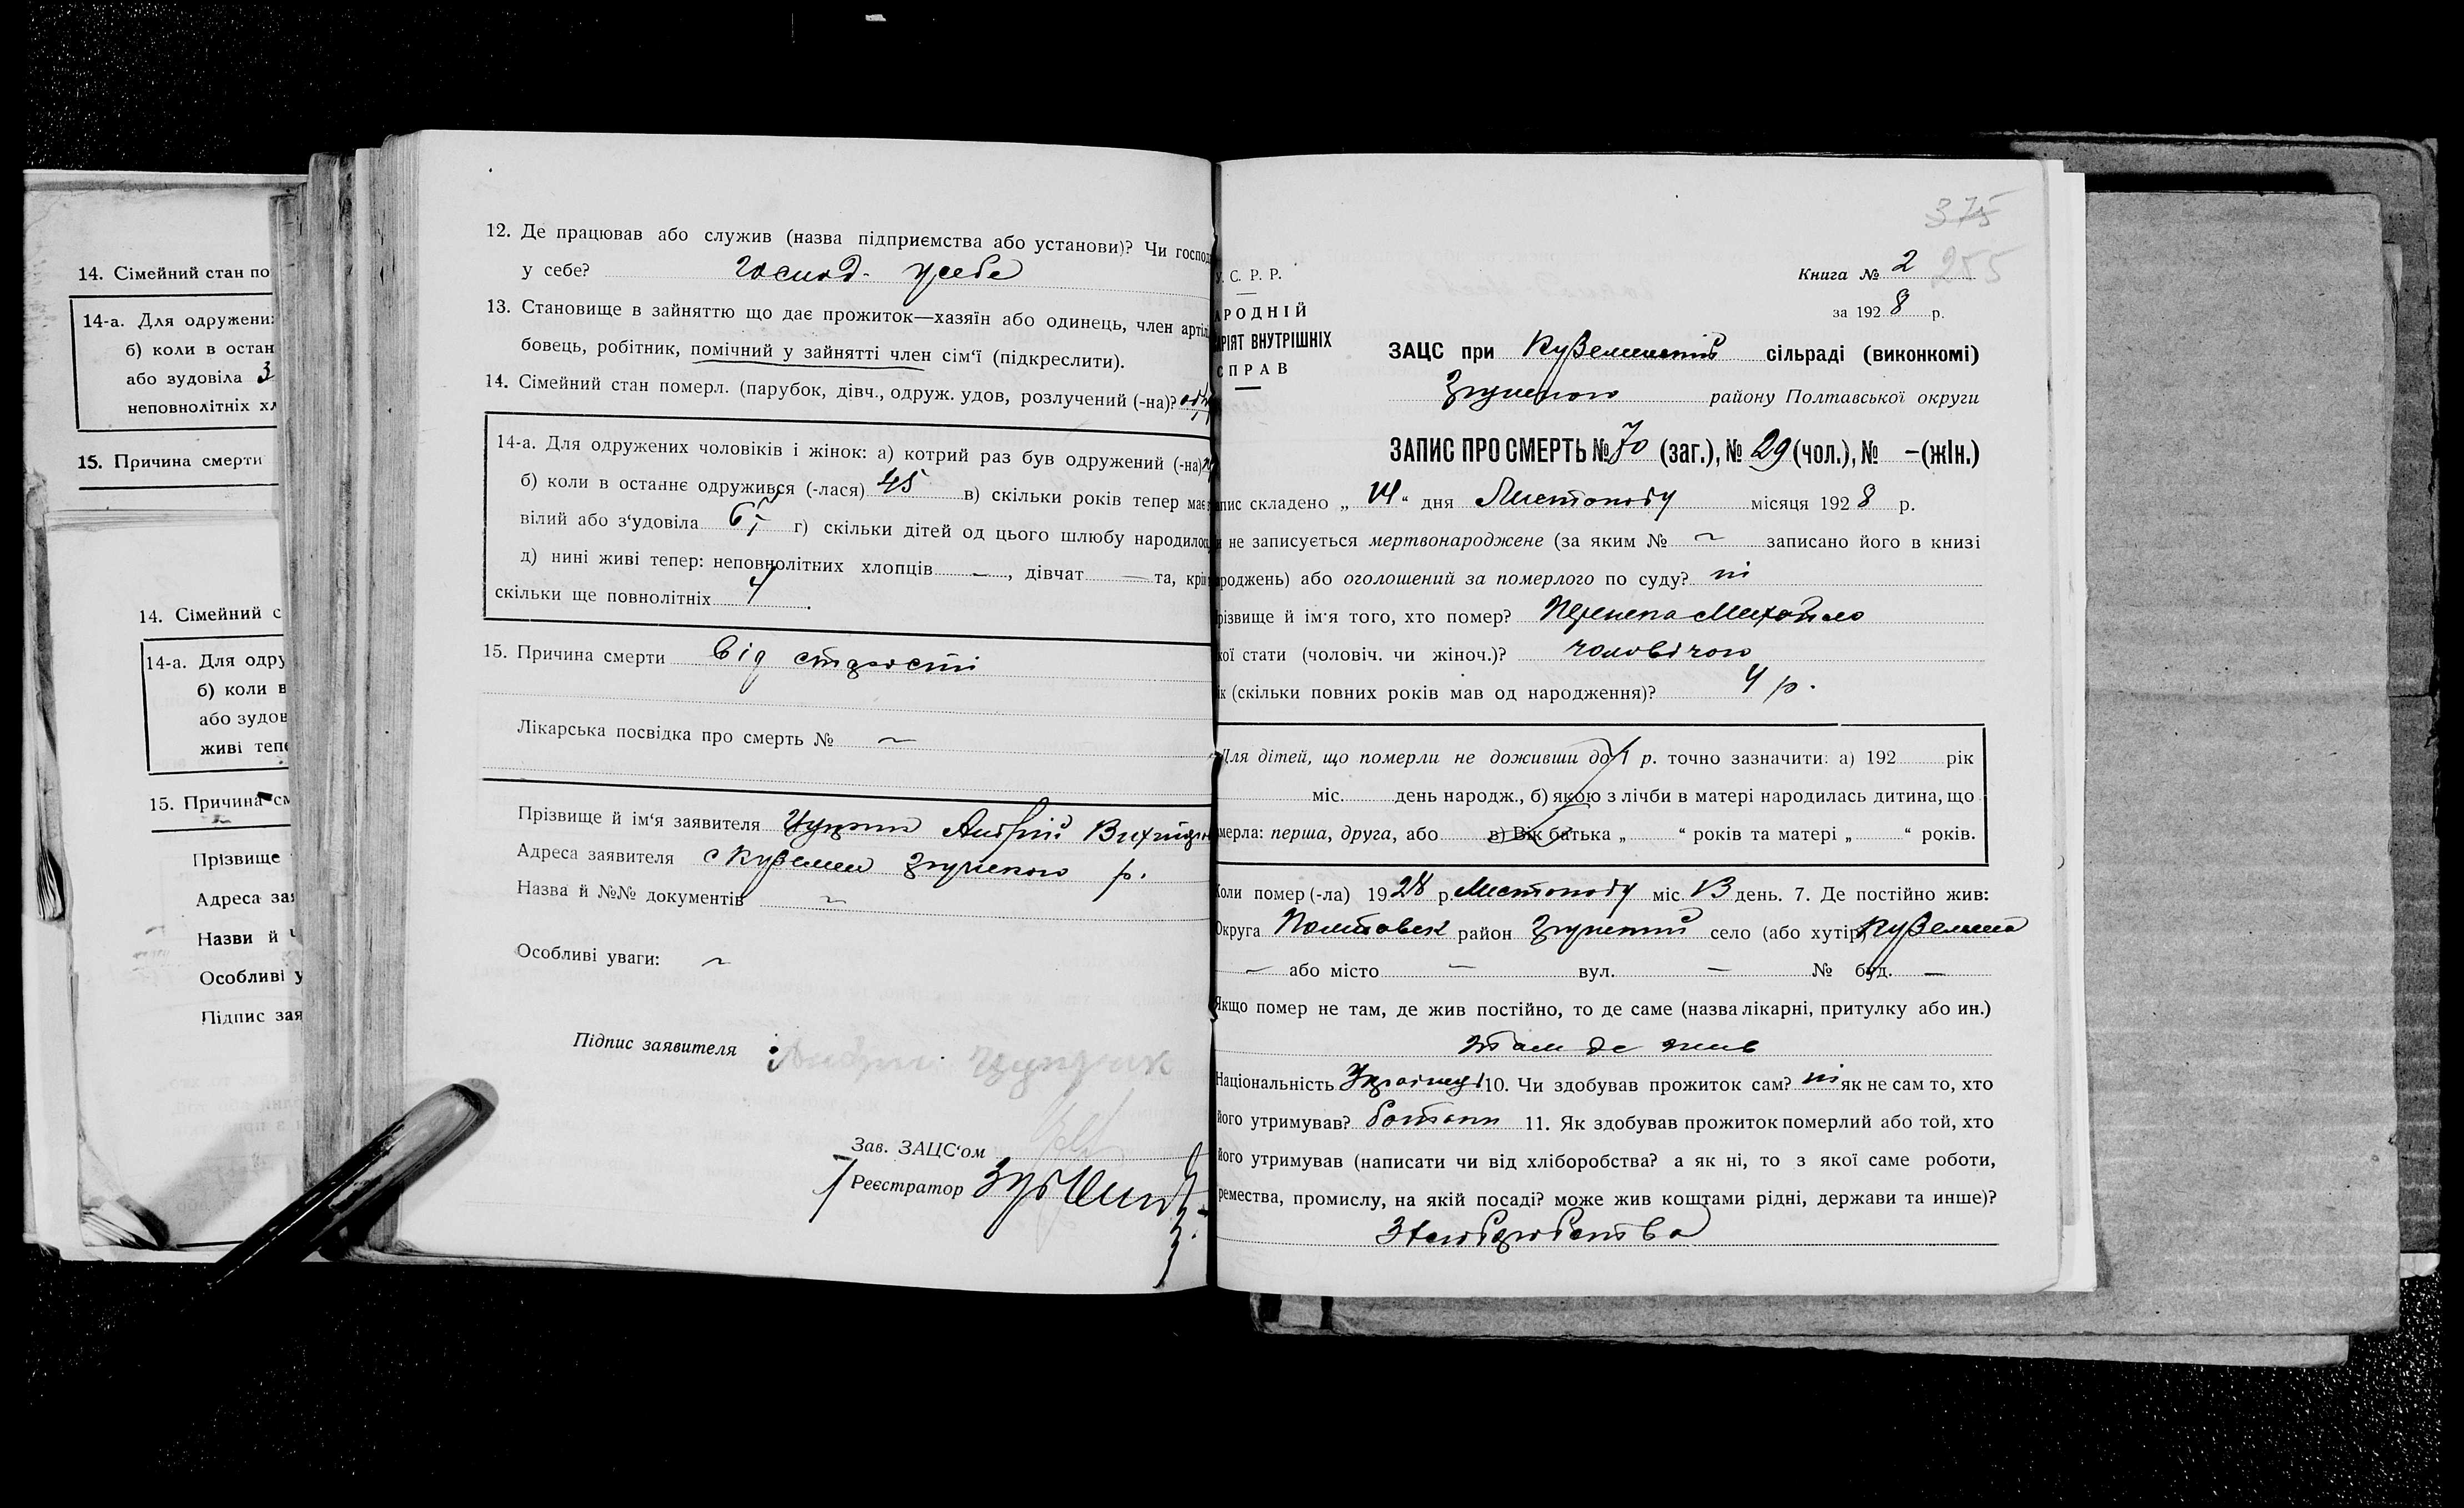 14. Сімейний стан по
14-а. Для одружени
б) коли в остан
або зудовіла 3
неповнолітніх хл
15. Причина смерти
14. Сімейний с
14-а. Для одру
б) коли в
або зудов
живі тепе
15. Причина см
Прізвище
Адреса зая
Назви й
Особливі у
Підпис зая
12. Де працював або служив (назва підприємства або установи)? Чи господ
у себе? Господ. у себе
13. Становище в зайняттю що дає прожиток—хазяїн або одинець, член артіл
бовець, робітник, помічний у зайнятті член сім'ї (підкреслити).
14. Сімейний стан померл. (парубок, дівч., одруж. удов, розлучений (-на)?
14-а. Для одружених чоловіків і жінок: а) котрий раз був одружений (-на)
б) коли в останнє одружився (-лася) 45 в) скільки років тепер має
вілий або з'удовіла г) скільки дітей од цього шлюбу народилос
д) нині живі тепер: неповнолітних хлопців —, дівчат — та, крім
скільки ще повнолітніх 4.
15. Причина смерти від старості
Лікарська посвідка про смерть № ~
Прізвище й ім'я заявителя Цуприк Андрій
Адреса заявителя с Куземен Зінків р.
Назва й №№ документів ~
Особливі уваги: ~
Підпис заявителя Андрій Цуприк
Зав. ЗАЦС'ом
Реєстратор
375
255
У. С. Р. Р.
АРОДНІЙ
АРІЯТ ВНУТРІШНІХ
СПРАВ
Книга № 2
за 1928 р.
ЗАЦС при сільраді (виконкомі)
району Полтавської округи
ЗАПИС ПРО СМЕРТЬ № 70 (заг.), № 29 (чол.), № - (жін.)
апис складено „14“ дня Листопаду місяця 1928 р.
и не записується мертвонароджене (за яким № ~ записано його в книзі
ароджень) або оголошений за померлого по суду? ні
різвище й ім'я того, хто помер? Перепела Михайло
кої стати (чоловіч. чи жіноч.)? чоловічого
ік (скільки повних років мав од народження)? 4 р.
Для дітей, що померли не доживши до 4 р. точно зазначити: а) 192 рік
міс. день народж., б) якою з лічби в матері народилась дитина, що
мерла: перша, друга, або в) Вік батька „ “ років та матері „ “ років.
Коли помер (-ла) 1928 р. Листопаду міс. 13 день. 7. Де постійно жив:
Округа Полтавськ район село (або хутір)
— або місто — вул. — № буд. —
Якщо помер не там, де жив постійно, то де саме (назва лікарні, притулку або ин.)
там де жив
Національність Українець 10. Чи здобував прожиток сам? ні як не сам то, хто
його утримував? батьки 11. Як здобував прожиток померлий або той, хто
його утримував (написати чи від хліборобства? а як ні, то з якої саме роботи,
ремества, промислу, на якій посаді? може жив коштами рідні, держави та инше)?
З хліборобства